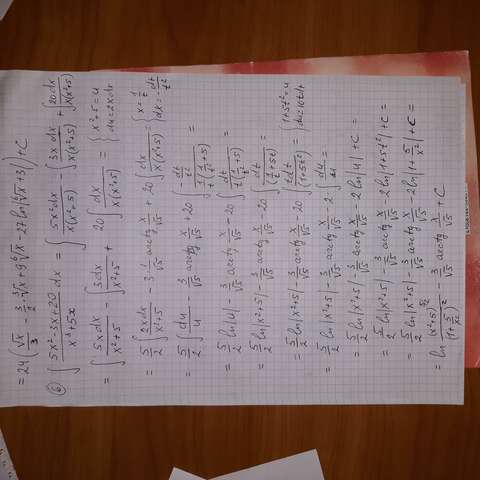 = 24 (√x/3 - 3/2 · ∛x + 9 ⁶√x - 27 ln|⁶√x + 3|) + C
⑥ ∫ (5x² - 3x + 20)/(x³ + 5x) dx = ∫ 5x² dx/(x(x² + 5)) - ∫ 3x dx/(x(x² + 5)) + ∫ 20 dx/(x(x² + 5))
= ∫ 5x dx/(x² + 5) - ∫ 3 dx/(x² + 5) + 20 ∫ dx/(x(x² + 5)) = { x² + 5 = u du = 2x dx
= 5/2 ∫ 2x dx/(x² + 5) - 3 · 1/√5 arctg x/√5 + 20 ∫ dx/(x(x² + 5)) = { x = 1/t dx = - dt/t²
= 5/2 ∫ du/u - 3/√5 arctg x/√5 + 20 ∫ (- dt/t²)/(1/t (1/t² + 5)) =
= 5/2 ln|u| - 3/√5 arctg x/√5 - 20 ∫ dt/(t(1/t² + 5)) =
= 5/2 ln|x² + 5| - 3/√5 arctg x/√5 - 20 ∫ dt/(1/t + 5t) =
= 5/2 ln|x² + 5| - 3/√5 arctg x/√5 - 20 ∫ t dt/(1 + 5t²) = { 1 + 5t² = u du = 10t dt
= 5/2 ln|x² + 5| - 3/√5 arctg x/√5 - 2 ∫ du/u =
= 5/2 ln|x² + 5| - 3/√5 arctg x/√5 - 2 ln|u| + C =
= 5/2 ln|x² + 5| - 3/√5 arctg x/√5 - 2 ln|1 + 5t²| + C =
= 5/2 ln|x² + 5| - 3/√5 arctg x/√5 - 2 ln|1 + 5/x²| + C =
= ln (x² + 5)^(5/2)/(1 + 5/x²)² - 3/√5 arctg x/√5 + C